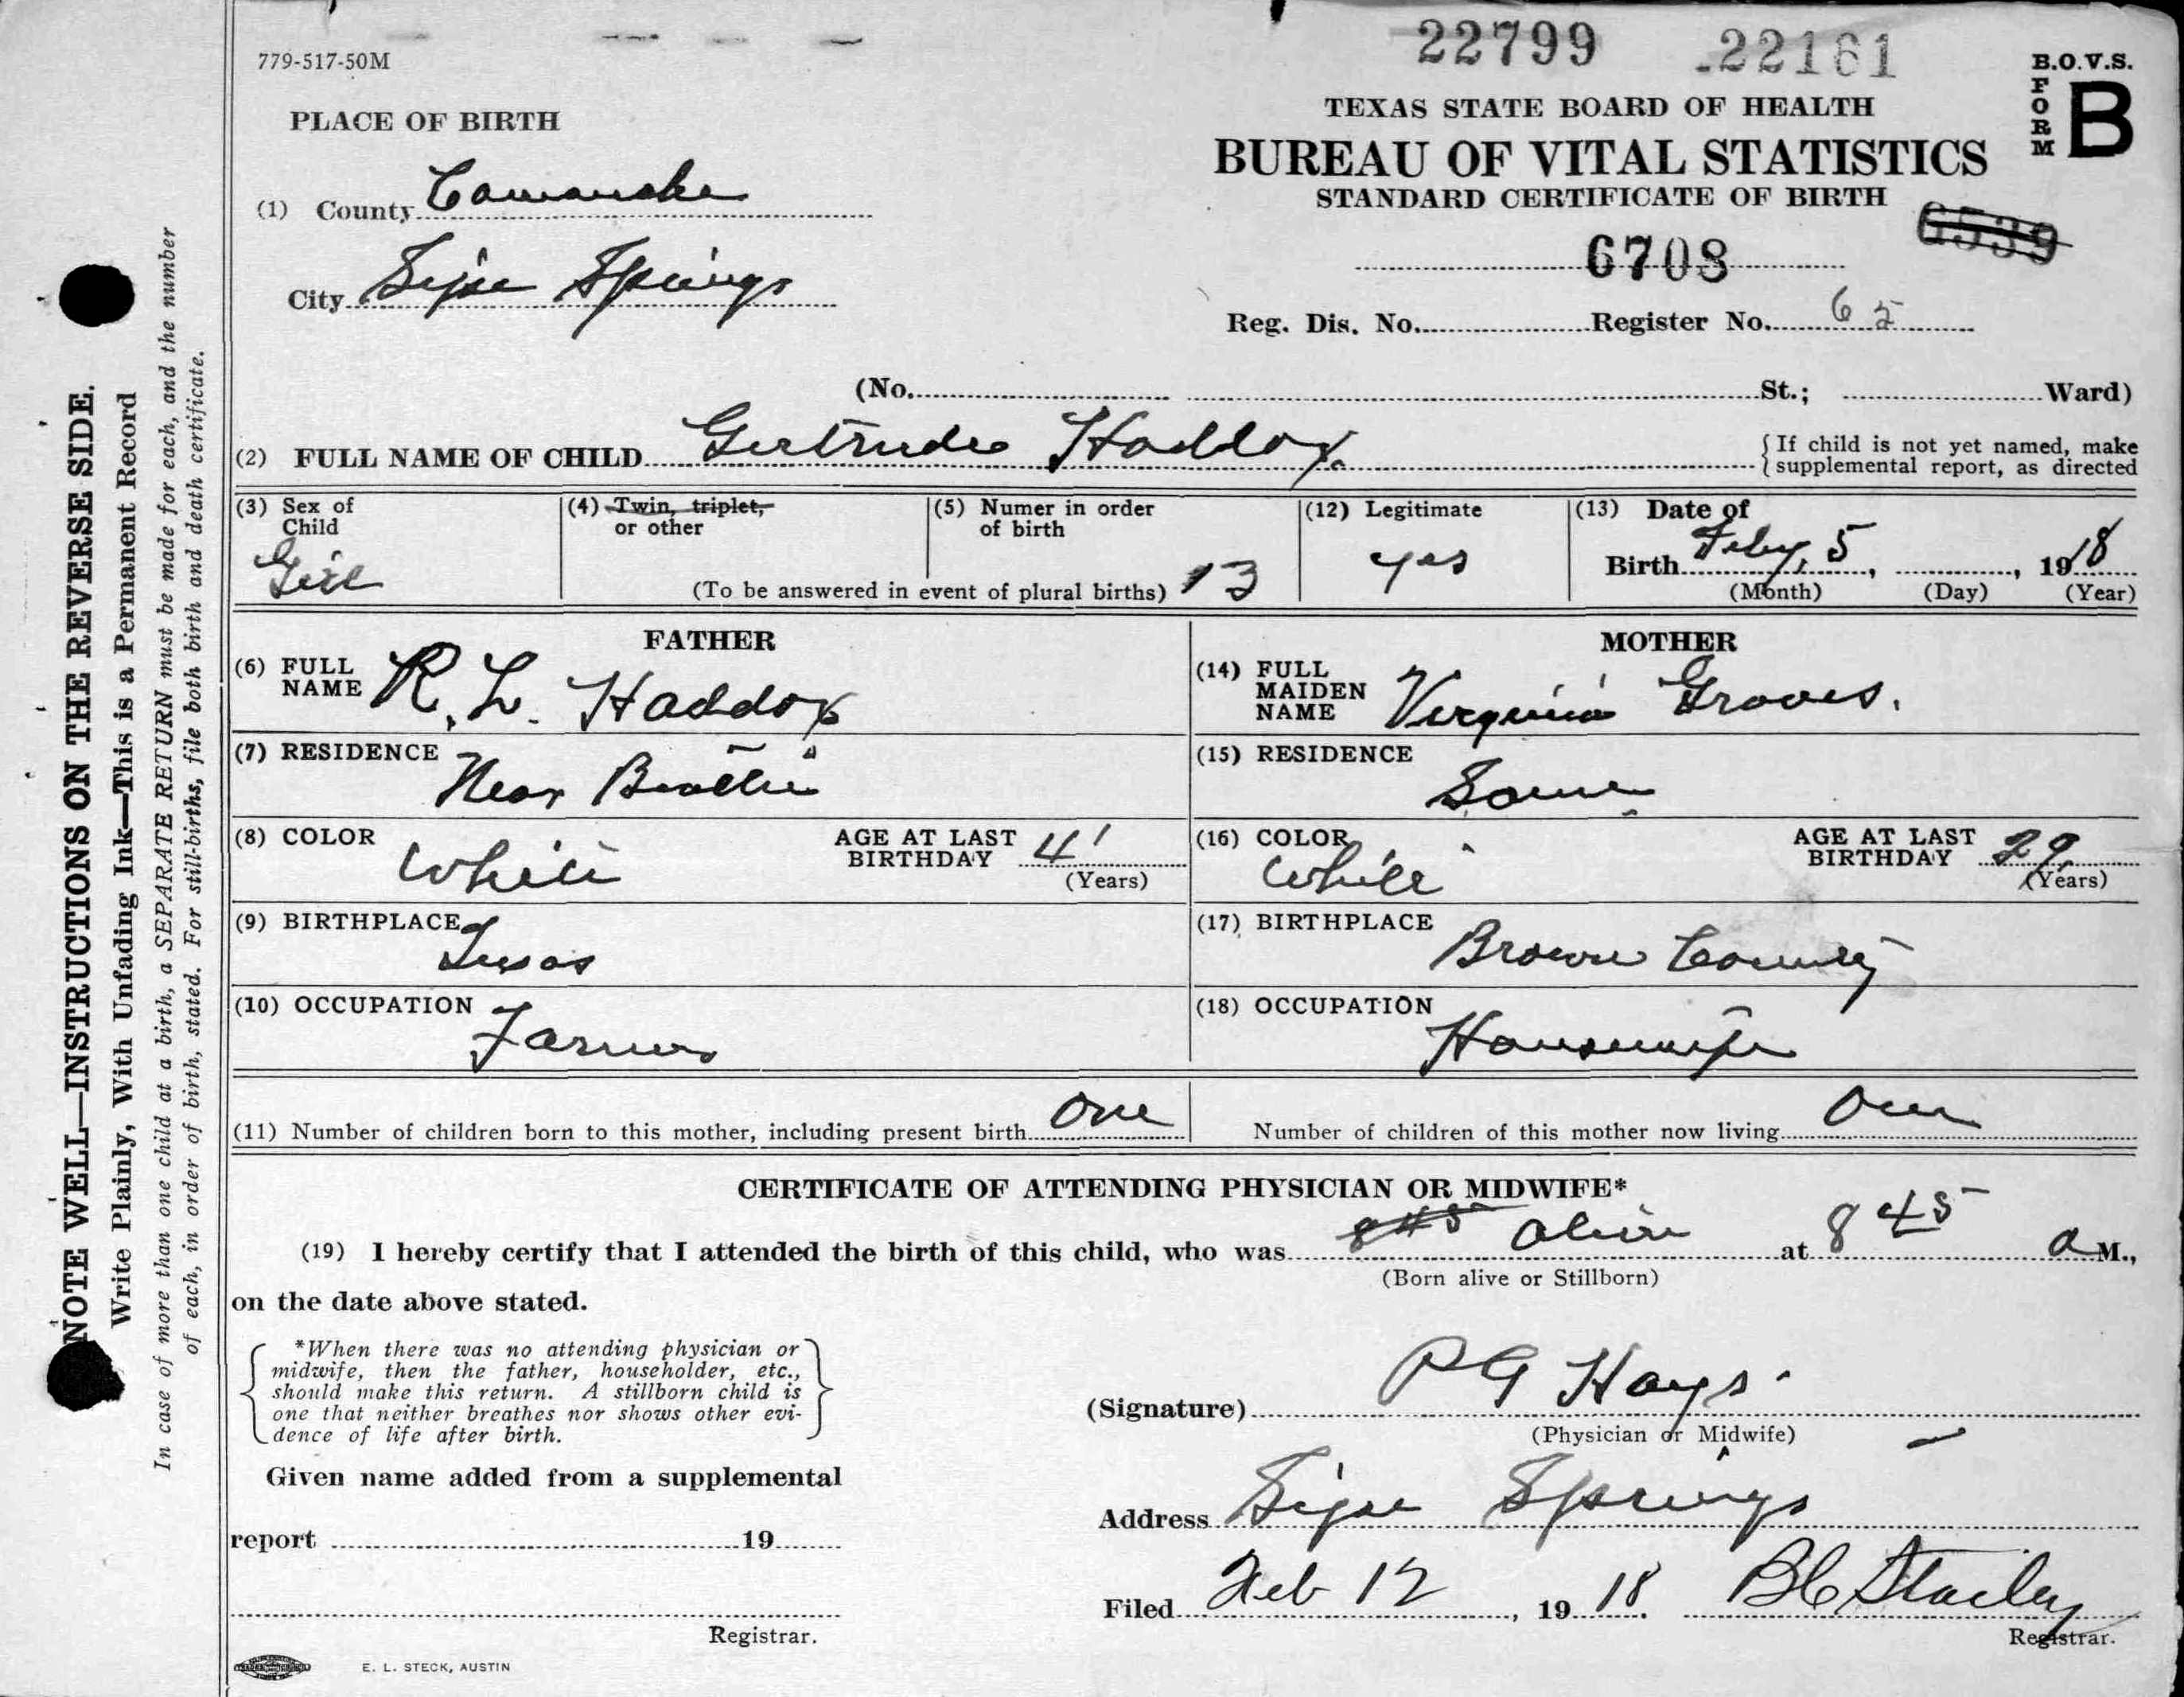 22799 22161
779-517-50M
B.O.V.S.
FORM B
TEXAS STATE BOARD OF HEALTH
BUREAU OF VITAL STATISTICS
STANDARD CERTIFICATE OF BIRTH
6539
6708
PLACE OF BIRTH
(1) County Comanche
City Sipe Springs
Reg. Dis. No. Register No. 65
(No. St.; Ward)
(2) FULL NAME OF CHILD Gertrude Haddox.
{If child is not yet named, make
supplemental report, as directed
(3) Sex of Child Girl
(4) Twin, triplet, or other
(5) Numer in order of birth
(To be answered in event of plural births) 13
(12) Legitimate yes
(13) Date of
Birth Feby, 5, , 1918
(Month) (Day) (Year)
FATHER
(6) FULL NAME R. L. Haddox
(7) RESIDENCE Near Beattie
(8) COLOR White
AGE AT LAST BIRTHDAY 41
(Years)
(9) BIRTHPLACE Texas
(10) OCCUPATION Farmer
MOTHER
(14) FULL MAIDEN NAME Virginia Groves.
(15) RESIDENCE Same
(16) COLOR White
AGE AT LAST BIRTHDAY 29
(Years)
(17) BIRTHPLACE Brown County
(18) OCCUPATION Housewife
(11) Number of children born to this mother, including present birth One
Number of children of this mother now living One
CERTIFICATE OF ATTENDING PHYSICIAN OR MIDWIFE*
(19) I hereby certify that I attended the birth of this child, who was 845 alive at 8 45 a M.,
(Born alive or Stillborn)
on the date above stated.
*When there was no attending physician or
midwife, then the father, householder, etc.,
should make this return. A stillborn child is
one that neither breathes nor shows other evi-
dence of life after birth.
(Signature) P G Hays.
(Physician or Midwife)
Given name added from a supplemental
report 19
Address Sipe Springs
Filed Feb 12, 1918. BC Stacley
Registrar.
Registrar.
E. L. STECK, AUSTIN
NOTE WELL—INSTRUCTIONS ON THE REVERSE SIDE.
Write Plainly, With Unfading Ink—This is a Permanent Record
In case of more than one child at a birth, a SEPARATE RETURN must be made for each, and the number
of each, in order of birth, stated. For still-births, file both birth and death certificate.